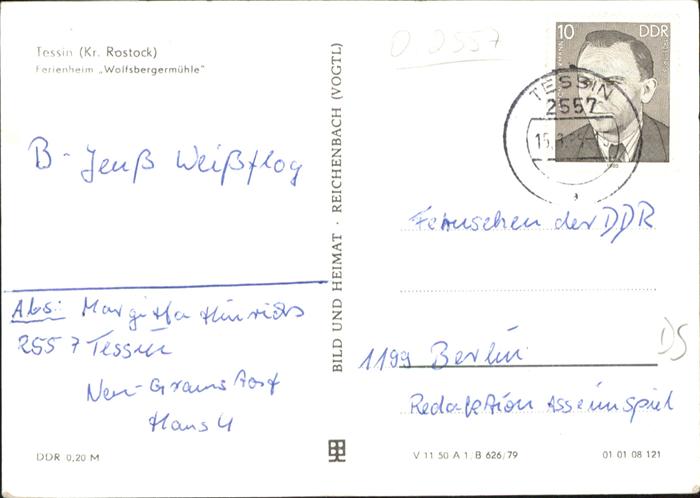 Tessin (Kr. Rostock)
Ferienheim „Wolfsbergermühle"
B - Jenß Weißflog
Abs: Margitta Hinrichs
2557 Tessin
Neu-Gramsdorf
Haus 4
DDR 0,20 M
BILD UND HEIMAT · REICHENBACH (VOGTL)
0 2557
10 DDR
TESSIN
2557
Fernsehen der DDR
1199 Berlin
Redaktion Asse im Spiel
DS
V 11 50 A 1/B 626/79
01 01 08 121